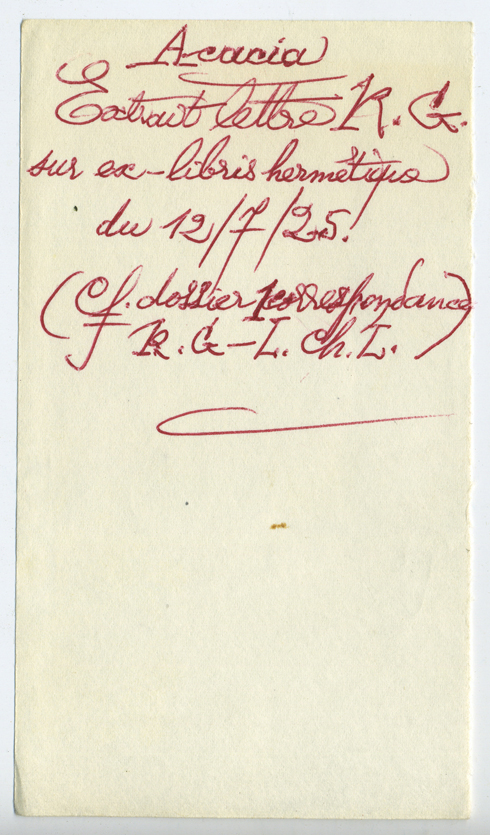 Acacia
Extrait lettre R. G.
sur ex-libris hermétique
du 12/7/25.
(Cf. dossier correspondance
R. G - L. Ch. L.)